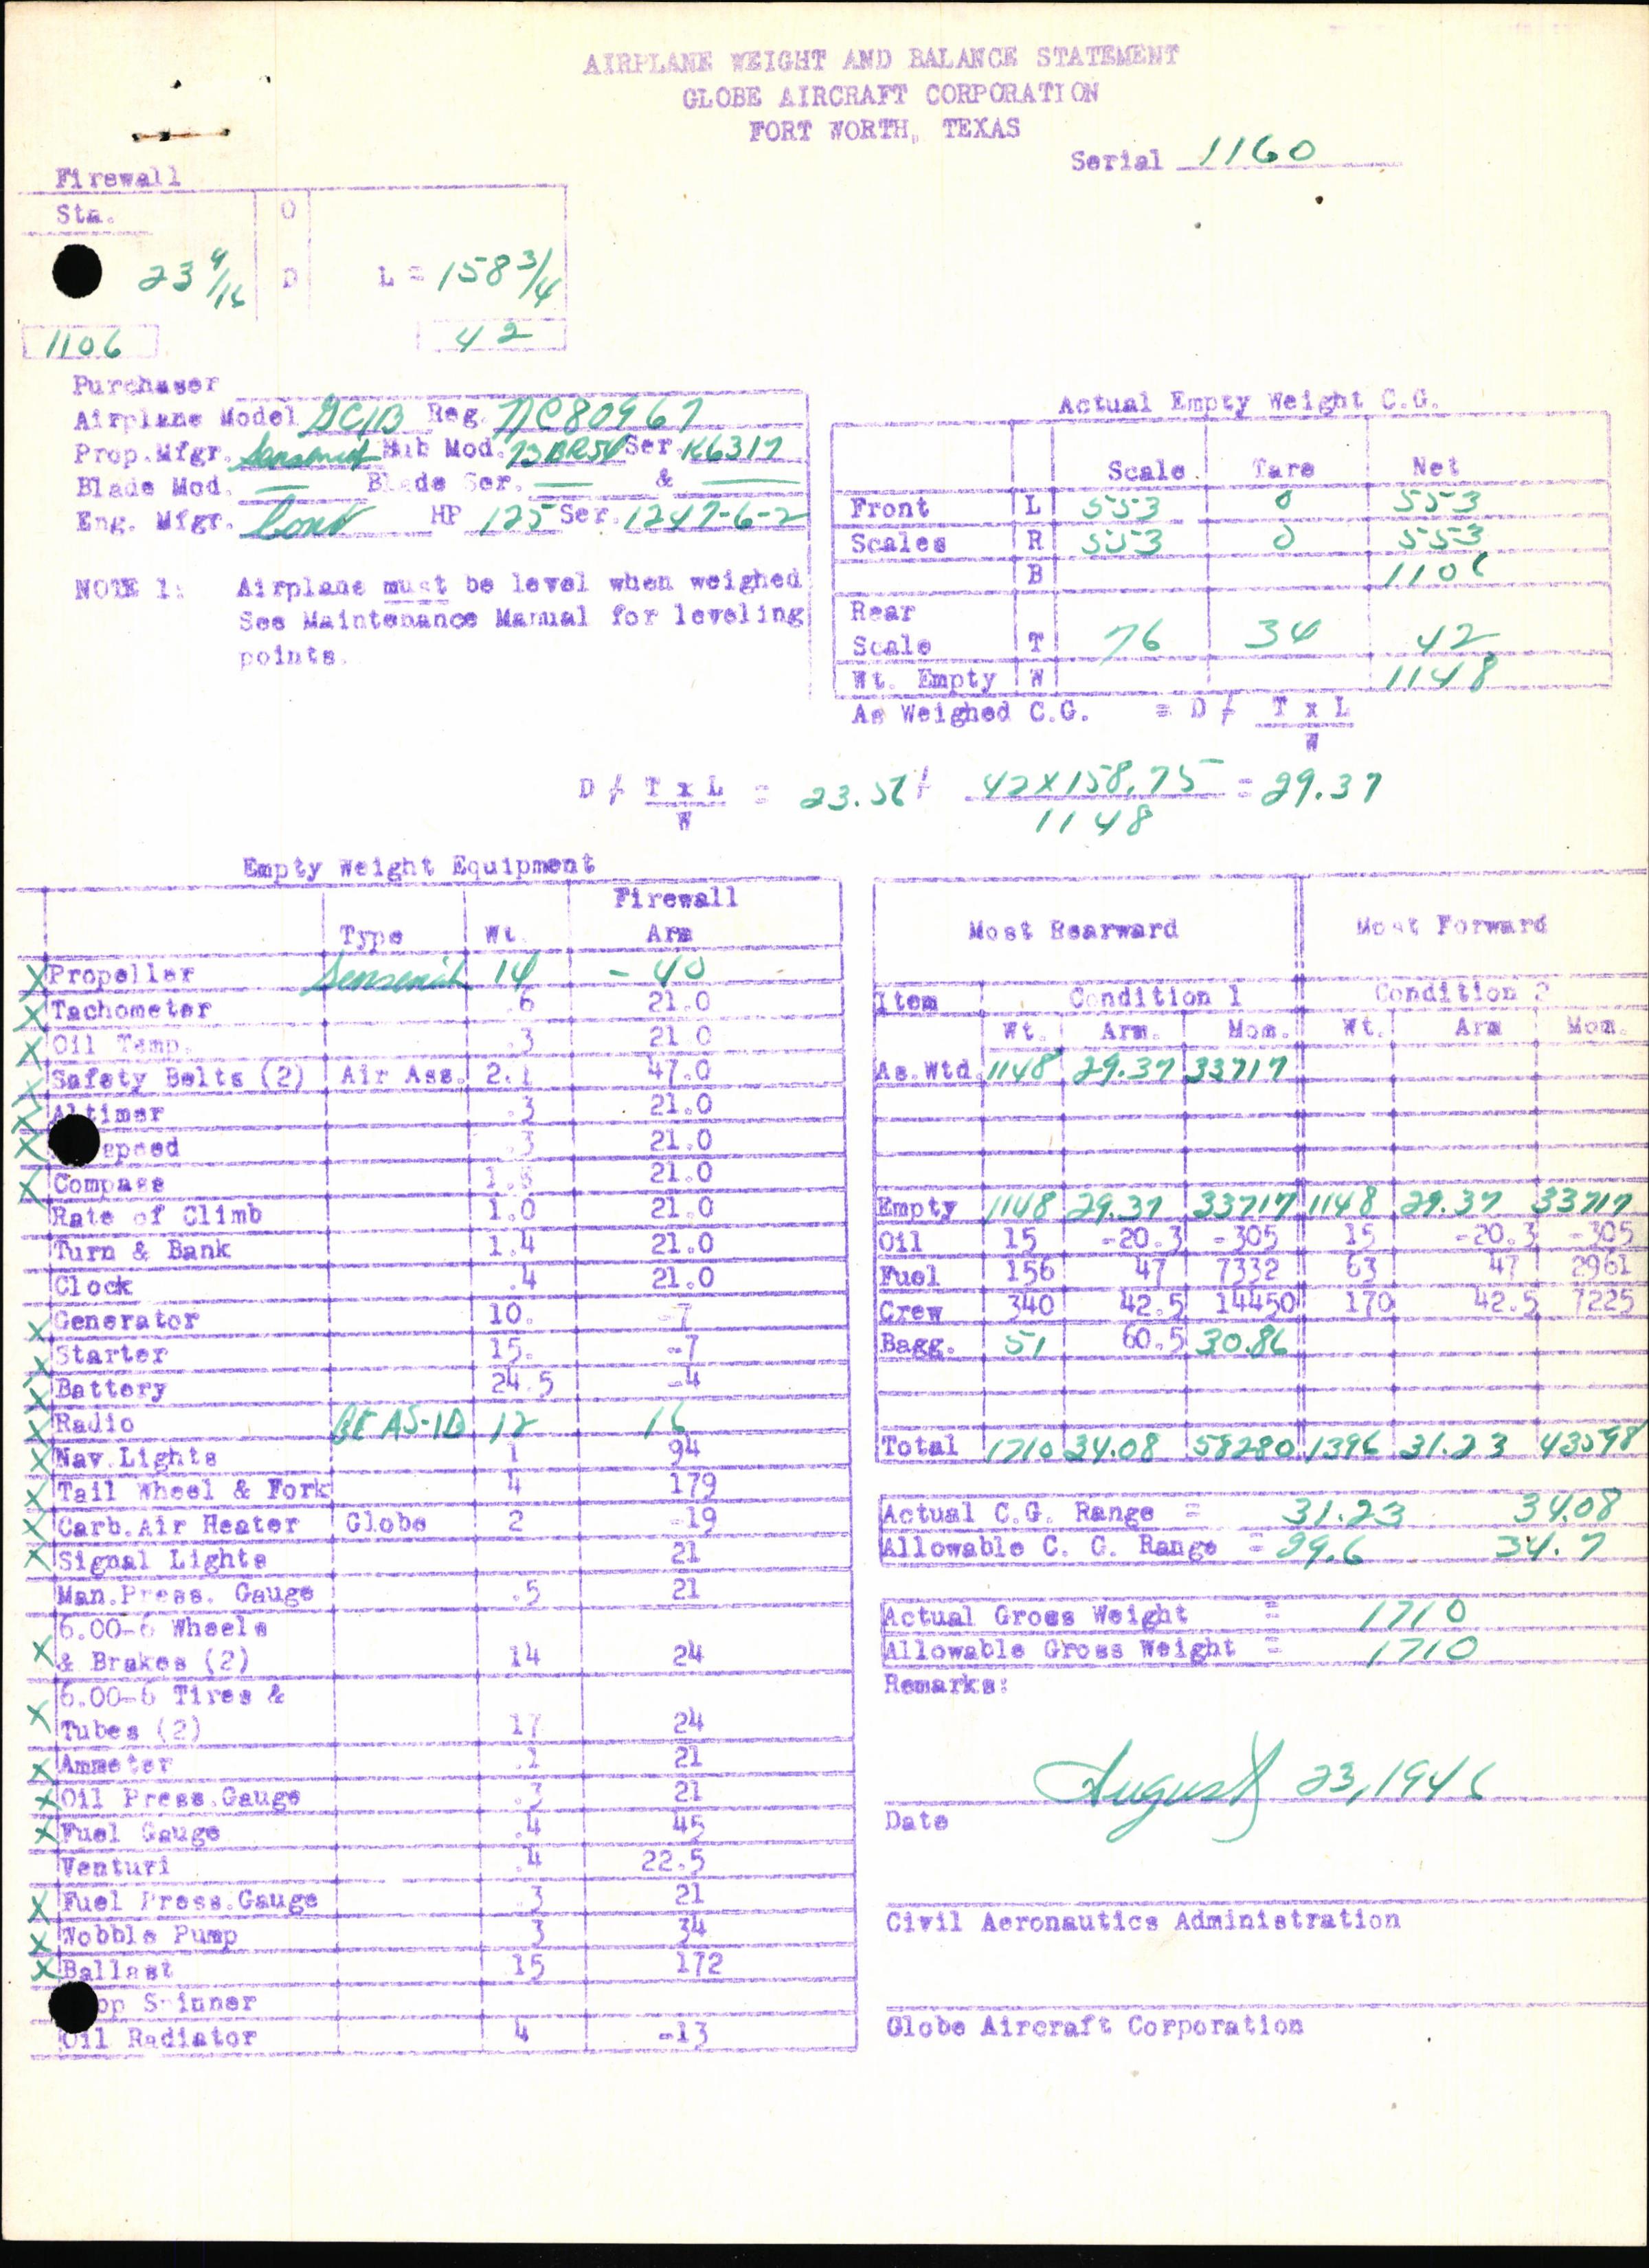 AIRPLANE WEIGHT AND BALANCE STATEMENT
GLOBE AIRCRAFT CORPORATION
FORT WORTH, TEXAS
Serial 1160
Firewall
Sta. O
23 9/16 D L = 158 3/4
1106 42
Purchaser
Airplane Model GC1B Reg. NC80967
Prop.Mfgr. Sensenich Hub Mod. 73BR54 Ser. K6317
Blade Mod. — Blade Ser. — & —
Eng. Mfgr. Cont HP 125 Ser. 1247-6-2
NOTE 1: Airplane must be level when weighed
See Maintenance Manual for leveling
points.
Actual Empty Weight C.G.
Scale Tare Net
Front L 553 0 553
Scales R 553 0 553
B 1106
Rear
Scale T 76 34 42
Wt. Empty W 1148
As Weighed C.G. = D / T x L
W
D / T x L = 23.56 + 42 x 158.75 = 29.37
W 1148
Empty Weight Equipment
Firewall
Type Wt. Arm
X Propeller Sensenich 14 -40
X Tachometer .6 21.0
X Oil Temp. .3 21.0
X Safety Belts (2) Air Ass. 2.1 47.0
X Altimer .3 21.0
X speed .3 21.0
X Compass 21.0
Rate of Climb 1.0 21.0
Turn & Bank 1.4 21.0
Clock .4 21.0
X Generator 10. -7
X Starter 15. -7
X Battery 24.5 -4
X Radio BE AS-1D 12 16
X Nav.Lights 1 94
X Tail Wheel & Fork 4 179
X Carb.Air Heater Globe 2 -19
X Signal Lights 21
Man.Press. Gauge .5 21
6.00-6 Wheels
X & Brakes (2) 14 24
6.00-6 Tires &
X Tubes (2) 17 24
X Ammeter .1 21
X Oil Press.Gauge .3 21
X Fuel Gauge .4 45
Venturi .4 22.5
X Fuel Press.Gauge .3 21
X Wobble Pump 3 34
X Ballast 15 172
op Spinner
Oil Radiator 4 -13
Most Rearward Most Forward
Item Condition 1 Condition 2
Wt. Arm. Mom. Wt. Arm Mom.
As.Wtd. 1148 29.37 33717
Empty 1148 29.37 33717 1148 29.37 33717
Oil 15 -20.3 -305 15 -20.3 -305
Fuel 156 47 7332 63 47 2961
Crew 340 42.5 14450 170 42.5 7225
Bagg. 51 60.5 30.86
Total 1710 34.08 58280 1396 31.23 43598
Actual C.G. Range = 31.23 34.08
Allowable C. G. Range = 29.6 34.7
Actual Gross Weight = 1710
Allowable Gross Weight = 1710
Remarks:
August 23, 1946
Date
Civil Aeronautics Administration
Globe Aircraft Corporation